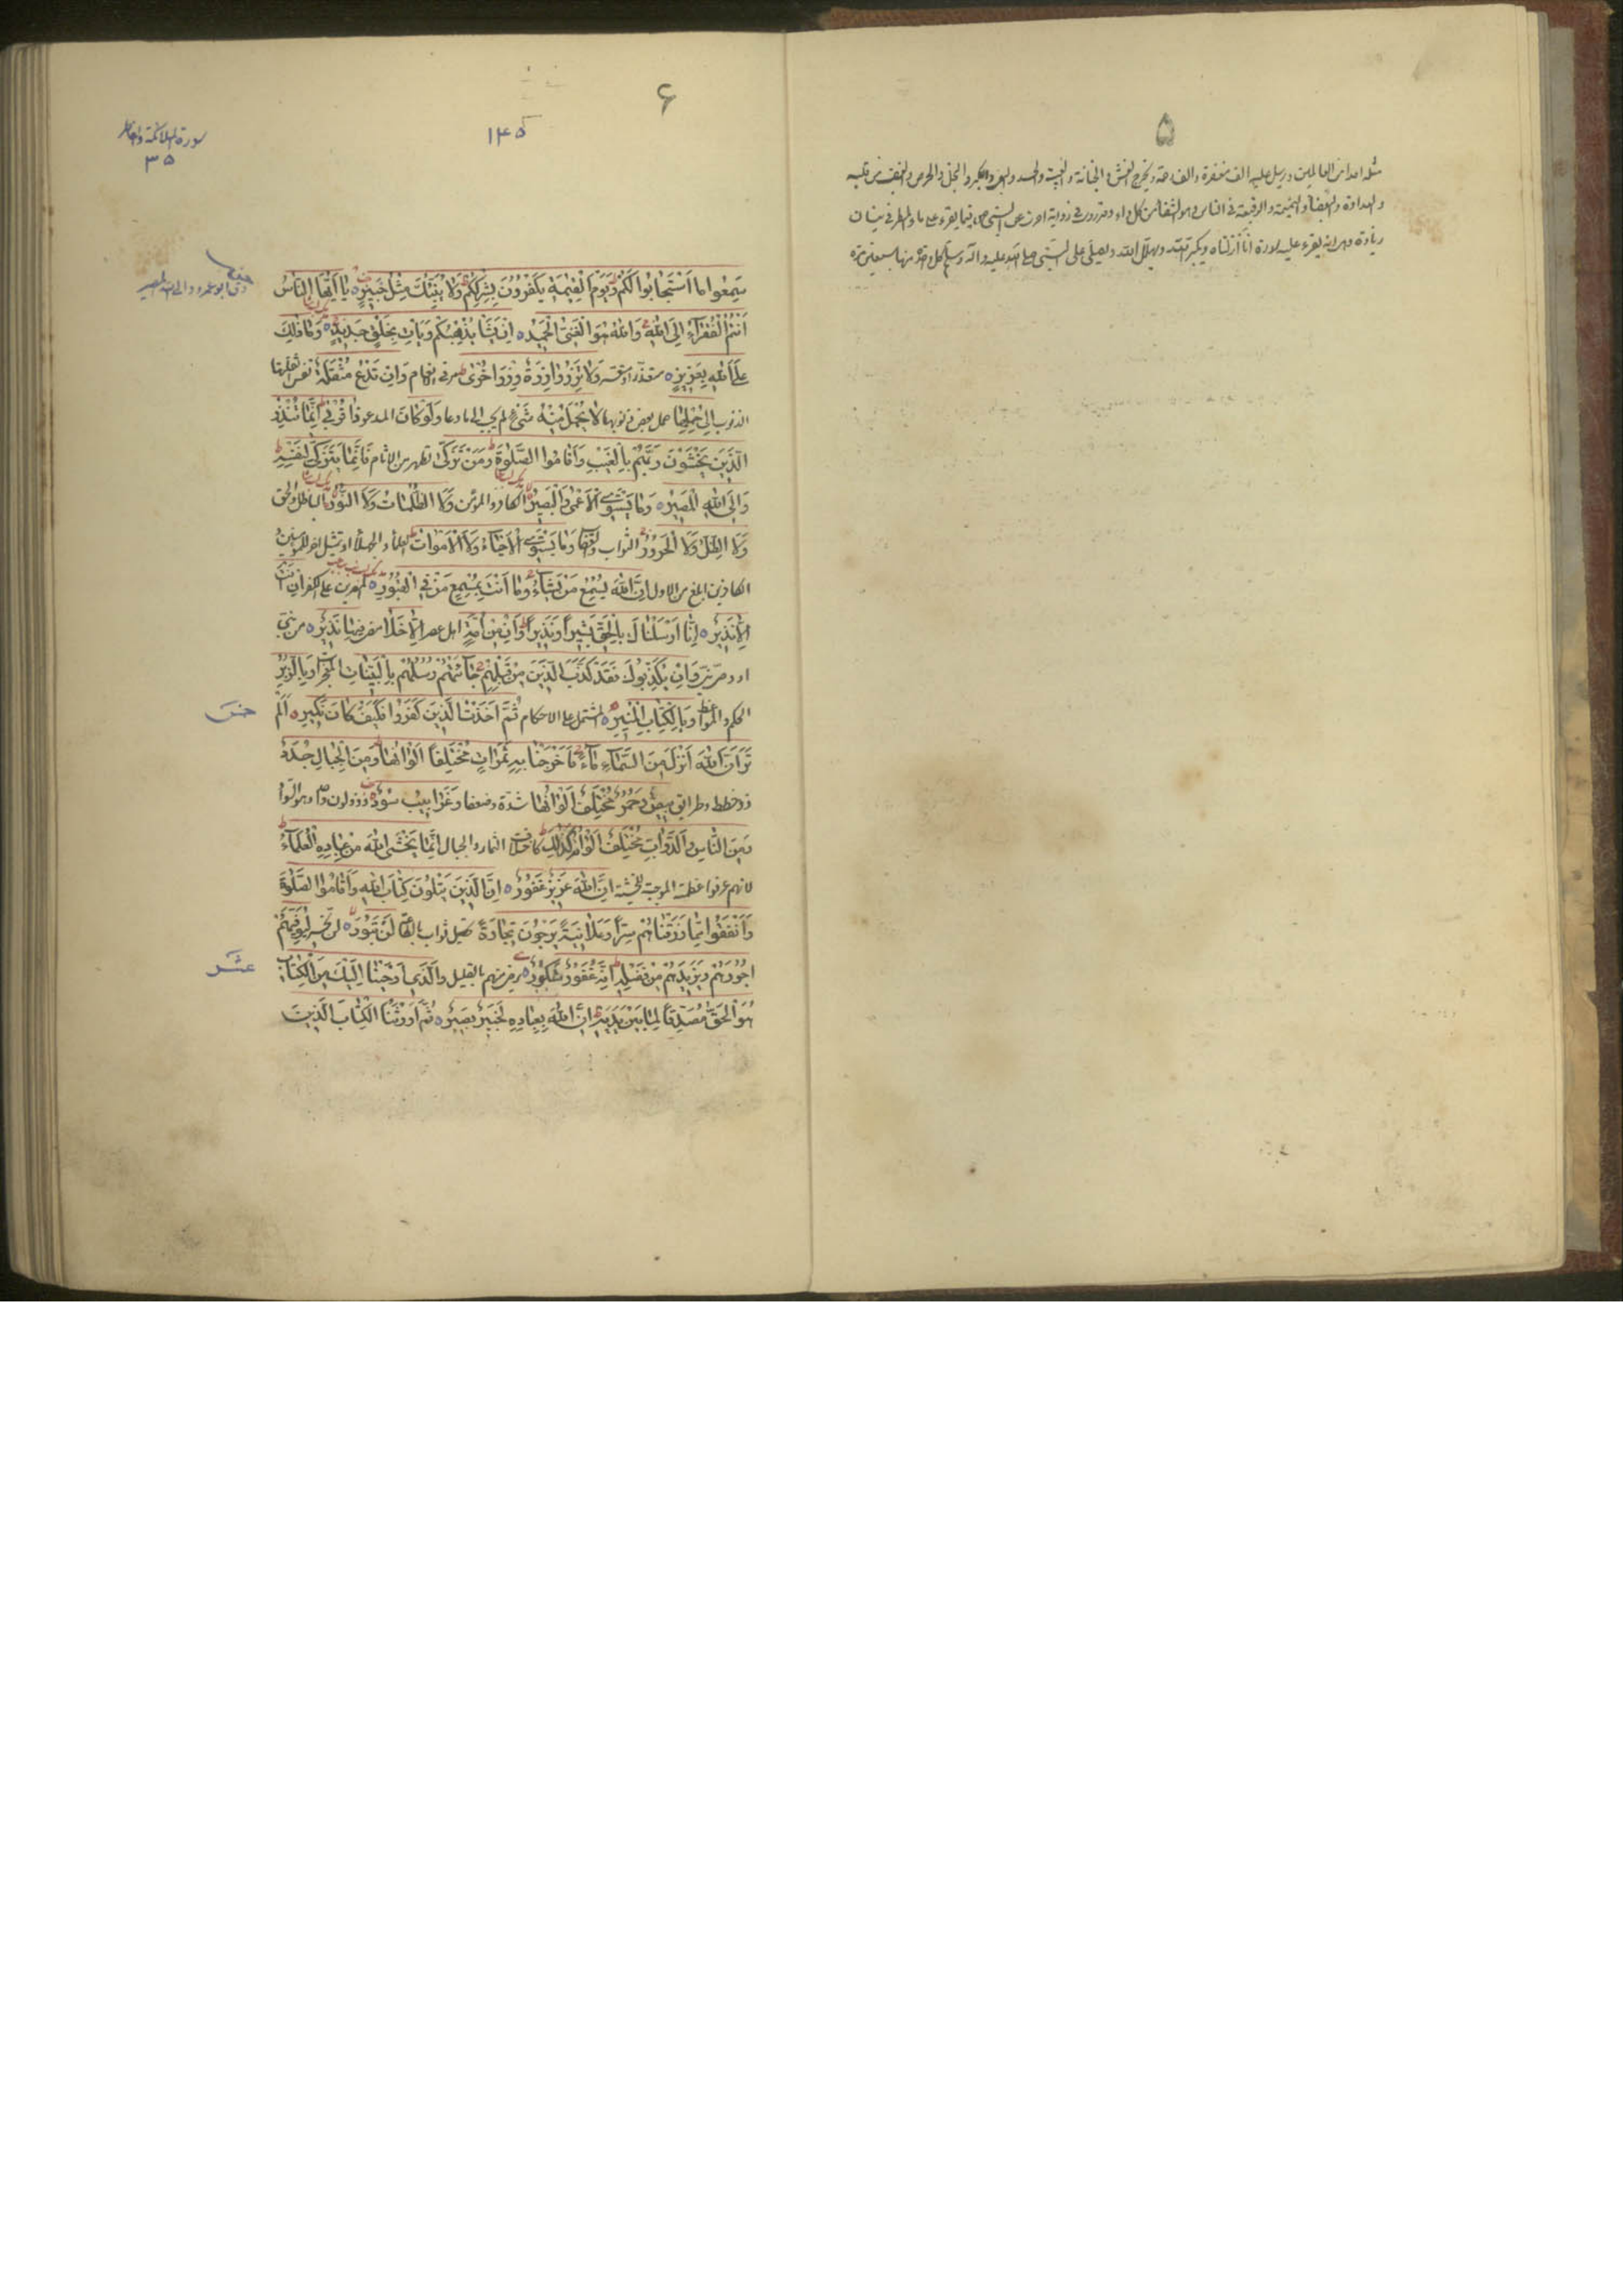 ۵
مثله احد من العالمين ويرسل عليه الف مغفرة والف رحمة ويخرج الغش والخيانة والغيبة والحسد والبغي والكبر والبخل والحرص والغضب من قلبه
والعداوة والبغضاء والنميمة والوقيعة في الناس وهو الشفاء من كل داء وقد روى في رواية اخرى عن النبي فيما يقرء على ماء المطر في نيسان
زيادة وهى انه يقرء عليه سورة انا انزلناه ويكبر الله ويهلل الله ويصلى على النبى صلى الله عليه وآله وسلم كل واحدة منها سبعين مرة
۶
۱۴۵
سورة الملائكة وفاطر
۳۵
سَمِعُوا مَا اسْتَجَابُوا لَكُمْ وَيَوْمَ الْقِيٰمَةِ يَكْفُرُونَ بِشِرْكِكُمْ وَلَا يُنَبِّئُكَ مِثْلُ خَبِيرٍ يَا أَيُّهَا النَّاسُ
أَنْتُمُ الْفُقَرَاءُ إِلَى اللّٰهِ وَاللّٰهُ هُوَ الْغَنِيُّ الْحَمِيدُ إِنْ يَشَأْ يُذْهِبْكُمْ وَيَأْتِ بِخَلْقٍ جَدِيدٍ وَمَا ذٰلِكَ
عَلَى اللّٰهِ بِعَزِيزٍ وَلَا تَزِرُ وَازِرَةٌ وِزْرَ أُخْرَىٰ وَإِنْ تَدْعُ مُثْقَلَةٌ نفس اثقلتها
الذنوب إِلَىٰ حِمْلِهَا حمل بعض ذنوبها لَا يُحْمَلْ مِنْهُ شَيْءٌ لم يجب الى ما دعا وَلَوْ كَانَ المدعو ذَا قُرْبَىٰ إِنَّمَا تُنْذِرُ
الَّذِينَ يَخْشَوْنَ رَبَّهُمْ بِالْغَيْبِ وَأَقَامُوا الصَّلٰوةَ وَمَنْ تَزَكَّىٰ تطهر من الآثام فَإِنَّمَا يَتَزَكَّىٰ لِنَفْسِهِ
وَإِلَى اللّٰهِ الْمَصِيرُ وَمَا يَسْتَوِي الْأَعْمَىٰ وَالْبَصِيرُ الكافر والمؤمن وَلَا الظُّلُمَاتُ وَلَا النُّورُ الباطل والحق
وَلَا الظِّلُّ وَلَا الْحَرُورُ الثواب والعقاب وَمَا يَسْتَوِي الْأَحْيَاءُ وَلَا الْأَمْوَاتُ العلماء والجهلاء او تمثيل اخر للمؤمنين
الكافرين ابلغ من الاول إِنَّ اللّٰهَ يُسْمِعُ مَنْ يَشَاءُ وَمَا أَنْتَ بِمُسْمِعٍ مَنْ فِي الْقُبُورِ المصرين على الكفر إِنْ أَنْتَ
إِلَّا نَذِيرٌ إِنَّا أَرْسَلْنَاكَ بِالْحَقِّ بَشِيرًا وَنَذِيرًا وَإِنْ مِنْ أُمَّةٍ اهل عصر إِلَّا خَلَا مضى فِيهَا نَذِيرٌ من نبى
او وصى نبى وَإِنْ يُكَذِّبُوكَ فَقَدْ كَذَّبَ الَّذِينَ مِنْ قَبْلِهِمْ جَاءَتْهُمْ رُسُلُهُمْ بِالْبَيِّنَاتِ المعجزات وَبِالزُّبُرِ
الحكم والمواعظ وَبِالْكِتَابِ الْمُنِيرِ المشتمل على الاحكام ثُمَّ أَخَذْتُ الَّذِينَ كَفَرُوا فَكَيْفَ كَانَ نَكِيرِ أَلَمْ
تَرَ أَنَّ اللّٰهَ أَنْزَلَ مِنَ السَّمَاءِ مَاءً فَأَخْرَجْنَا بِهِ ثَمَرَاتٍ مُخْتَلِفًا أَلْوَانُهَا وَمِنَ الْجِبَالِ جُدَدٌ
ذو خطط وطرائق بِيضٌ وَحُمْرٌ مُخْتَلِفٌ أَلْوَانُهَا شدة وضعفا وَغَرَابِيبُ سُودٌ
وَمِنَ النَّاسِ وَالدَّوَابِّ مُخْتَلِفٌ أَلْوَانُهُ كَذٰلِكَ كاختلاف الثمار والجبال إِنَّمَا يَخْشَى اللّٰهَ مِنْ عِبَادِهِ الْعُلَمَاءُ
لانهم عرفوا عظمته الموجبة للخشية إِنَّ اللّٰهَ عَزِيزٌ غَفُورٌ إِنَّ الَّذِينَ يَتْلُونَ كِتَابَ اللّٰهِ وَأَقَامُوا الصَّلٰوةَ
وَأَنْفَقُوا مِمَّا رَزَقْنَاهُمْ سِرًّا وَعَلَانِيَةً يَرْجُونَ تِجَارَةً تحصيل ثواب بالطاعة لَنْ تَبُورَ لن تخسر لِيُوَفِّيَهُمْ
أُجُورَهُمْ وَيَزِيدَهُمْ مِنْ فَضْلِهِ إِنَّهُ غَفُورٌ شَكُورٌ يرضى منهم بالقليل وَالَّذِي أَوْحَيْنَا إِلَيْكَ مِنَ الْكِتَابِ
هُوَ الْحَقُّ مُصَدِّقًا لِمَا بَيْنَ يَدَيْهِ إِنَّ اللّٰهَ بِعِبَادِهِ لَخَبِيرٌ بَصِيرٌ ثُمَّ أَوْرَثْنَا الْكِتَابَ الَّذِينَ
خمس
عشر